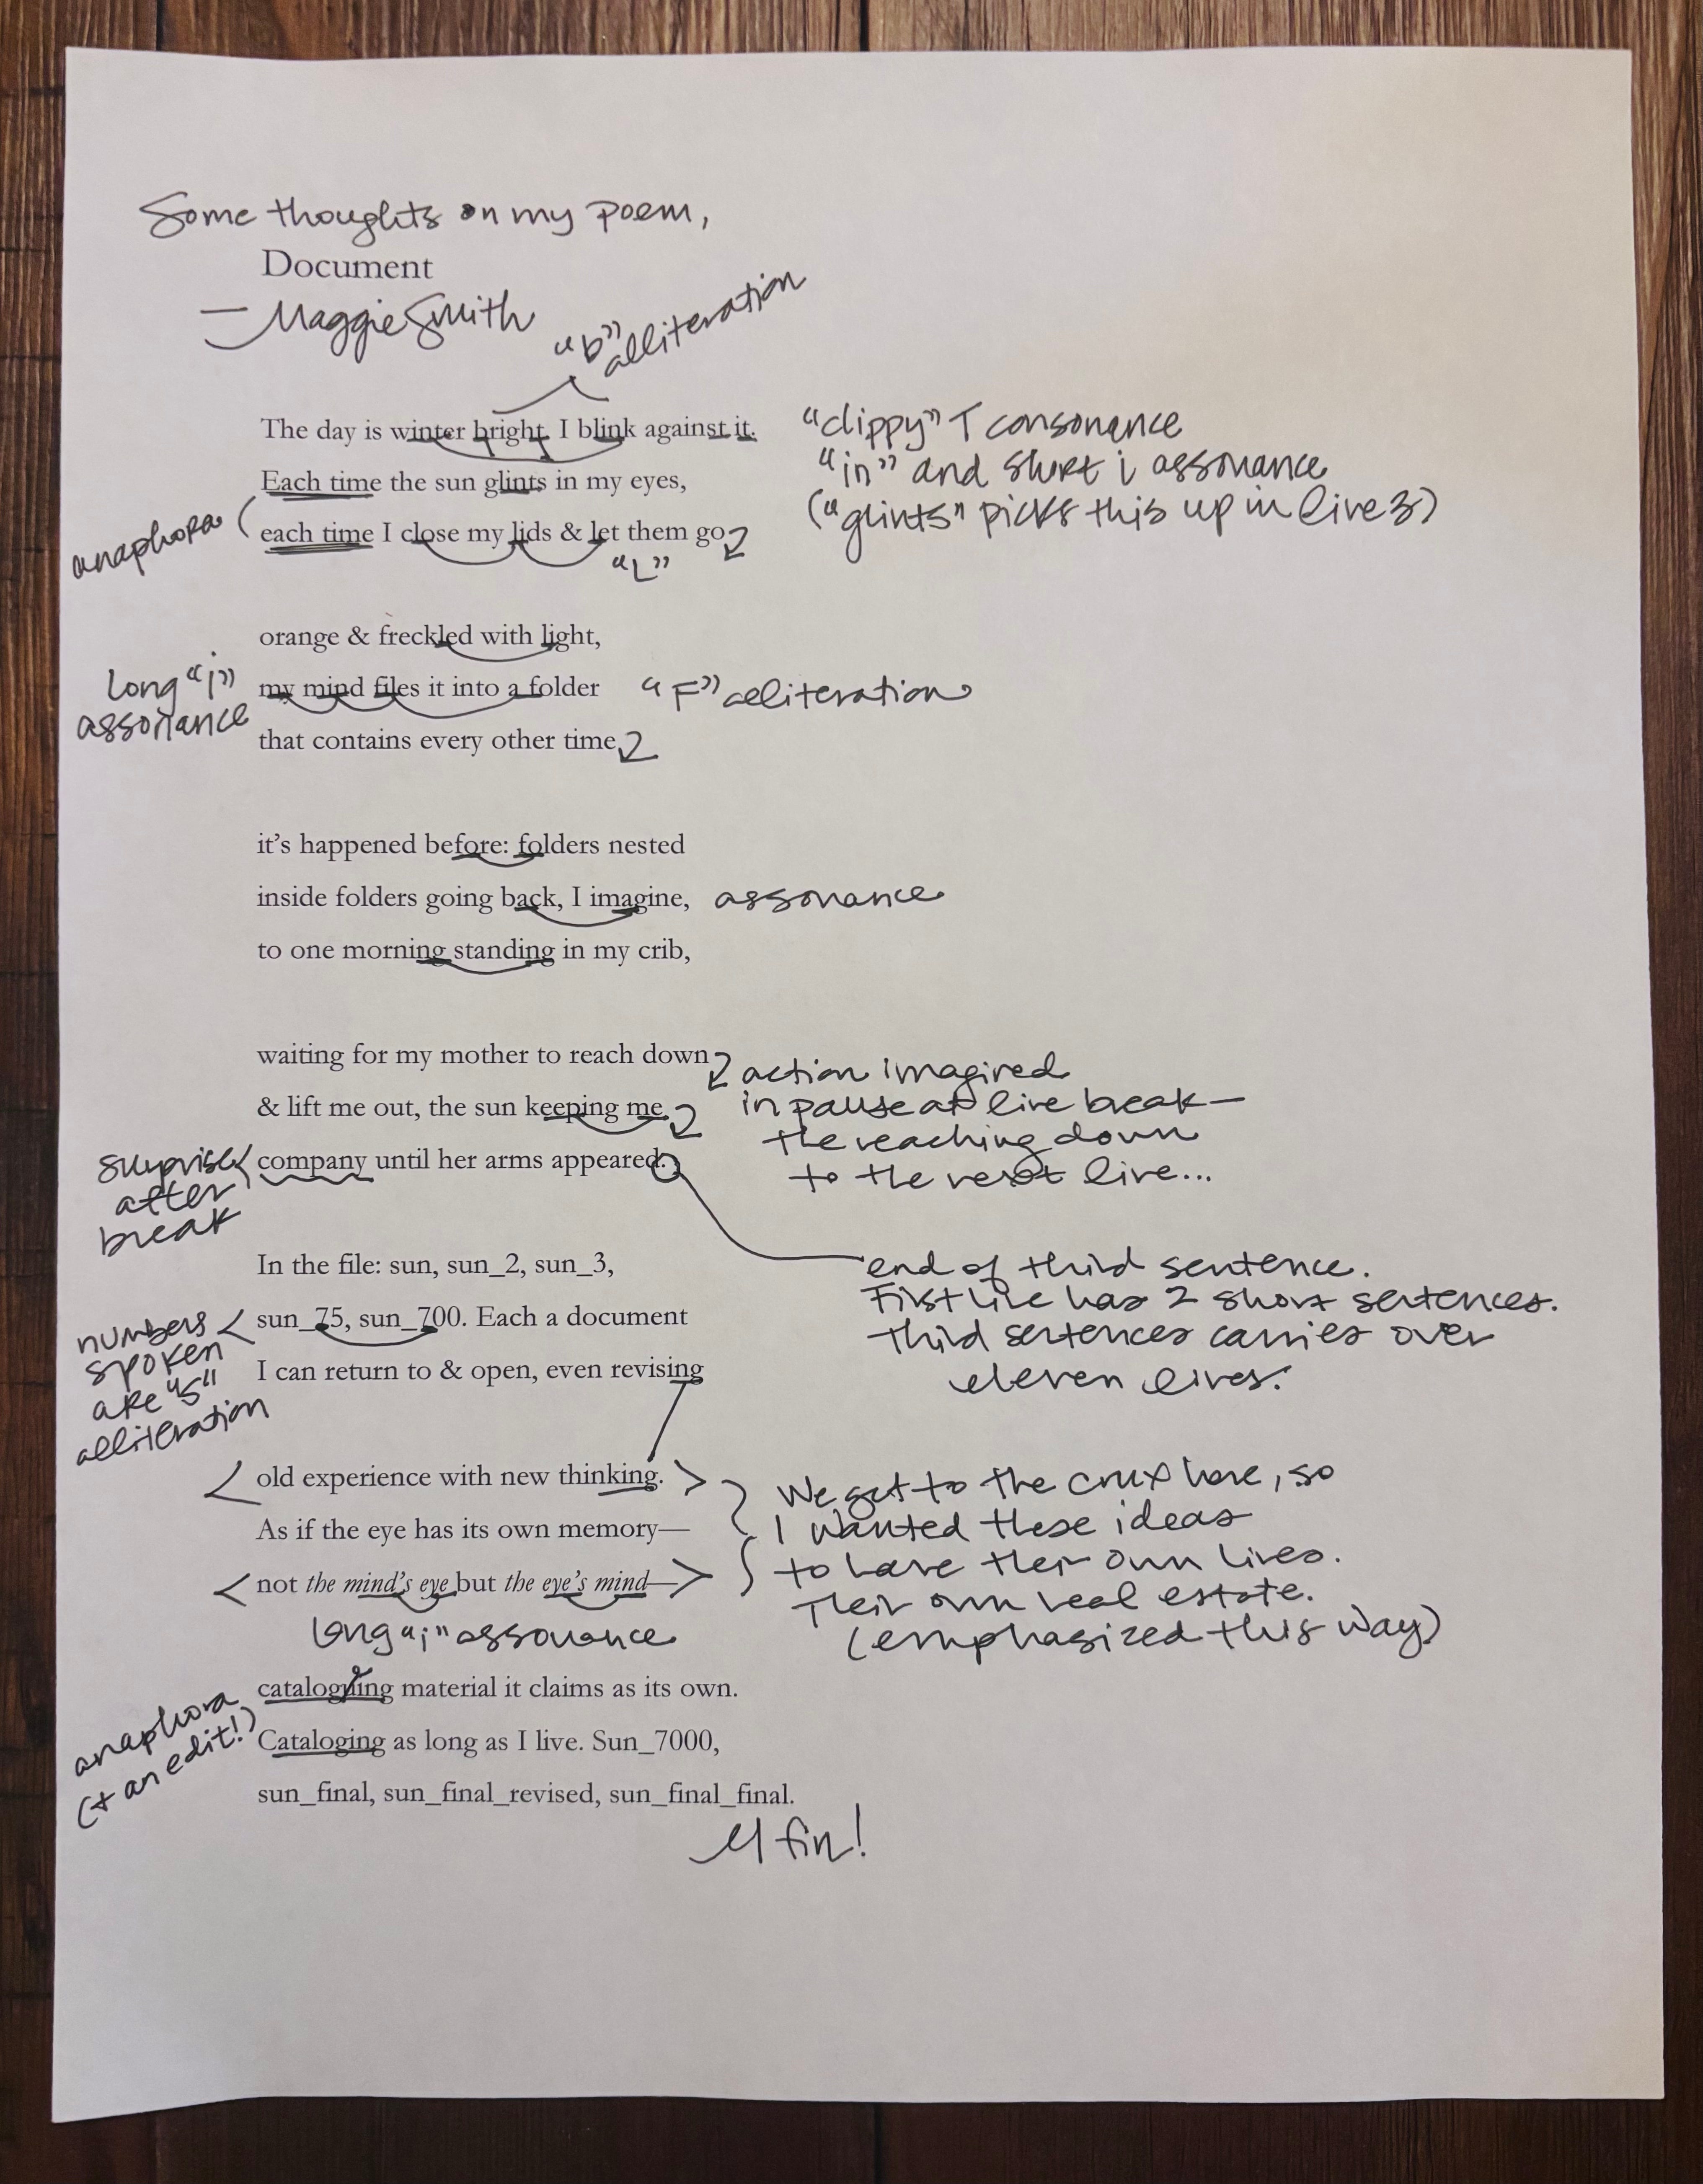 Some thoughts on my poem,
Document
— Maggie Smith
"b" alliteration
The day is winter bright, I blink against it.
"clippy" T consonance
"in" and short i assonance
("glints" picks this up in line 3)
Each time the sun glints in my eyes,
anaphora
each time I close my lids & let them go
"L"
orange & freckled with light,
long "i"
assonance
my mind files it into a folder
"F" alliteration
that contains every other time
it's happened before: folders nested
inside folders going back, I imagine,
assonance
to one morning standing in my crib,
waiting for my mother to reach down
action imagined
in pause at line break—
the reaching down
to the next line...
& lift me out, the sun keeping me
surprise
after
break
company until her arms appeared.
end of third sentence.
First line has 2 short sentences.
Third sentences carries over
eleven lines.
In the file: sun, sun_2, sun_3,
numbers
spoken
are "s"
alliteration
sun_75, sun_700. Each a document
I can return to & open, even revising
old experience with new thinking.
We get to the crux here, so
I wanted these ideas
to have their own lines.
Their own real estate.
(emphasized this way)
As if the eye has its own memory—
not the mind's eye but the eye's mind—
long "i" assonance
anaphora
(+ an edit!)
cataloguing material it claims as its own.
Cataloging as long as I live. Sun_7000,
sun_final, sun_final_revised, sun_final_final.
fin!